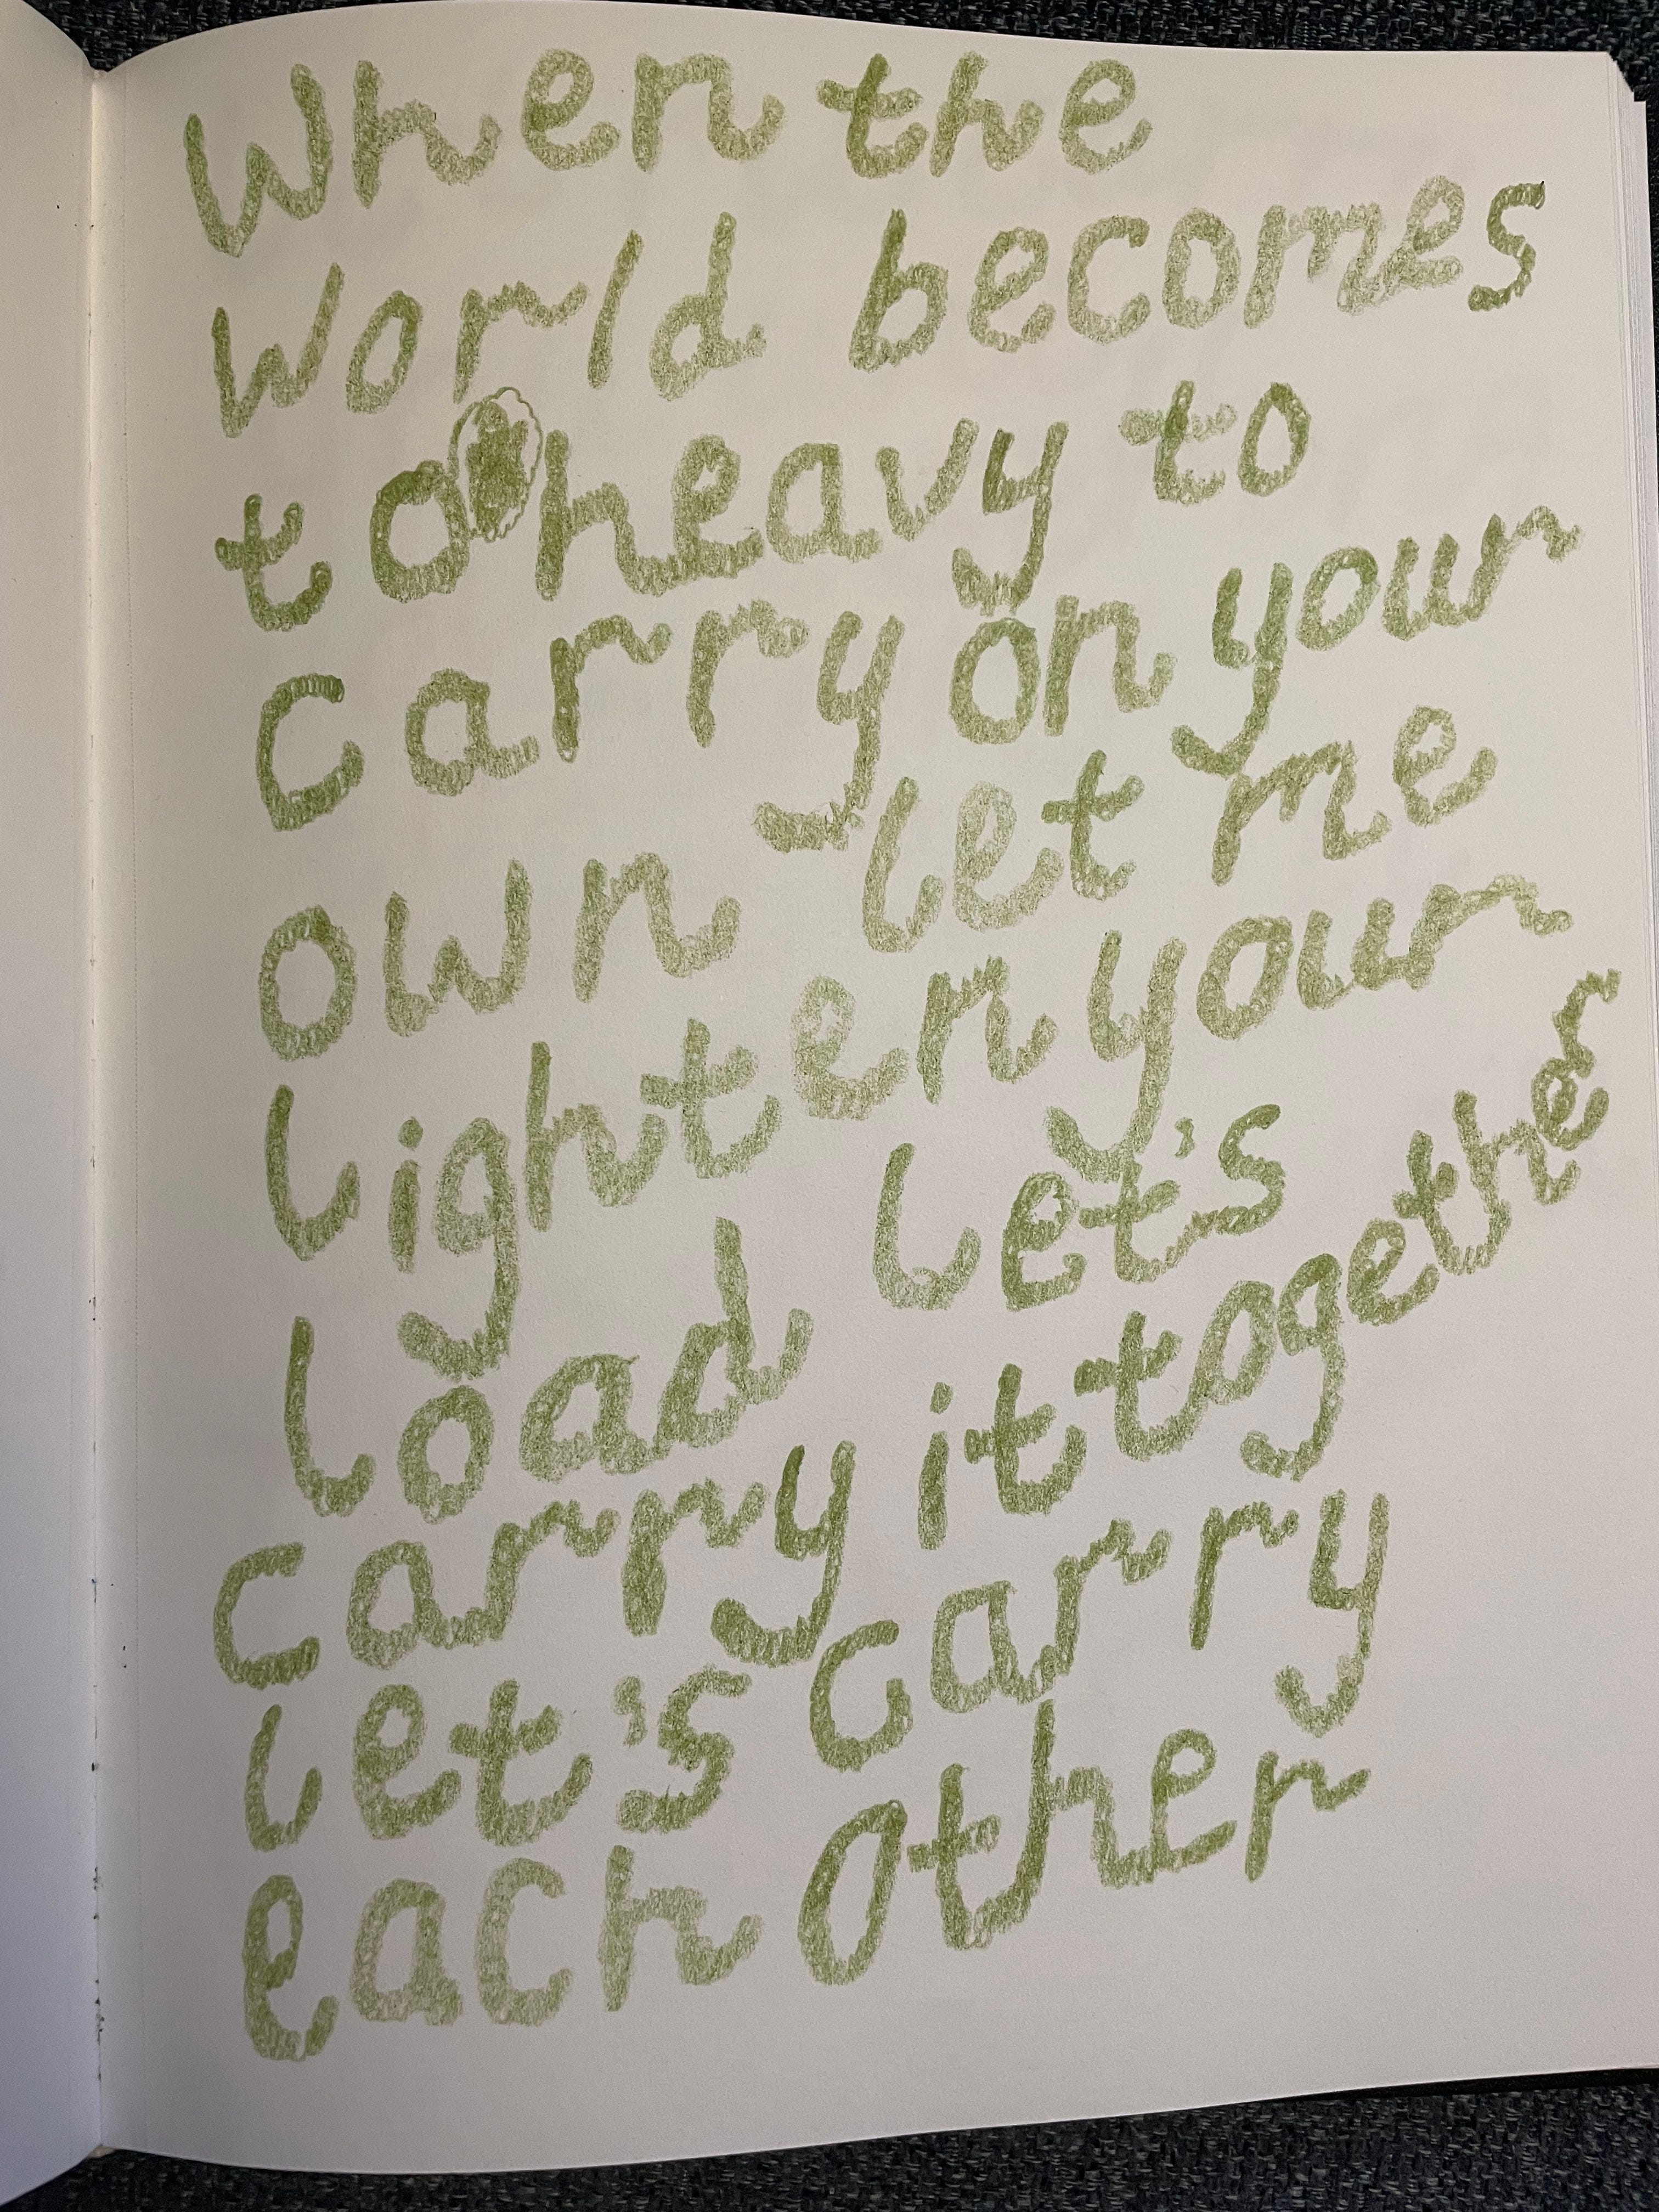 When the
World becomes
to heavy to
carry on your
own let me
lighten your
load let's
carry it together
let's carry
each other